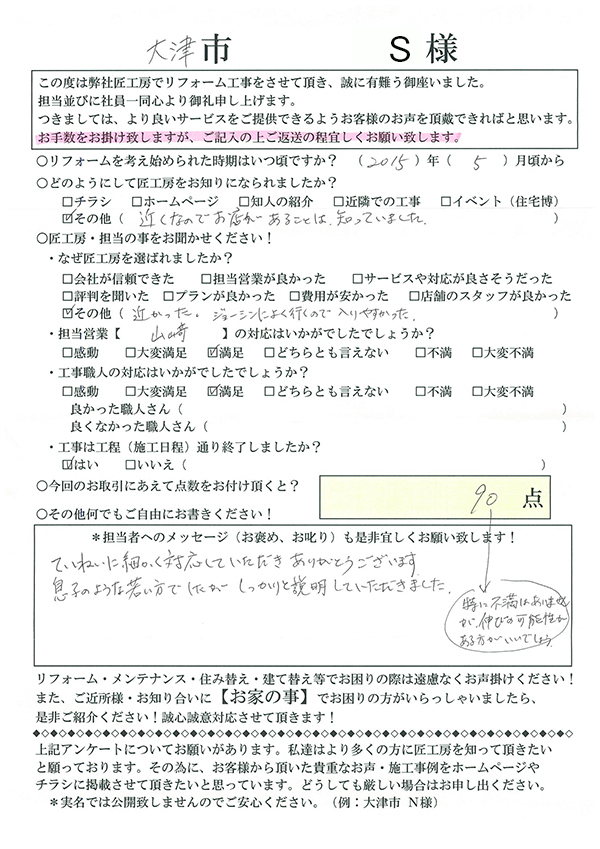 大津市 S 様
この度は弊社匠工房でリフォーム工事をさせて頂き、誠に有難う御座いました。
担当並びに社員一同心より御礼申し上げます。
つきましては、より良いサービスをご提供できるようお客様のお声を頂戴できればと思います。
お手数をお掛け致しますが、ご記入の上ご返送の程宜しくお願い致します。
○リフォームを考え始められた時期はいつ頃ですか？ （2015）年（ 5 ）月頃から
○どのようにして匠工房をお知りになられましたか？
□チラシ □ホームページ □知人の紹介 □近隣での工事 □イベント（住宅博）
☑その他（ 近くなのでお店があることは、知っていました。 ）
○匠工房・担当の事をお聞かせください！
・なぜ匠工房を選ばれましたか？
□会社が信頼できた □担当営業が良かった □サービスや対応が良さそうだった
□評判を聞いた □プランが良かった □費用が安かった □店舗のスタッフが良かった
☑その他（ 近かった。ジョーシンによく行くので入りやすかった。 ）
・担当営業【 山﨑 】の対応はいかがでしたでしょうか？
□感動 □大変満足 ☑満足 □どちらとも言えない □不満 □大変不満
・工事職人の対応はいかがでしたでしょうか？
□感動 □大変満足 ☑満足 □どちらとも言えない □不満 □大変不満
良かった職人さん（ ）
良くなかった職人さん（ ）
・工事は工程（施工日程）通り終了しましたか？
☑はい □いいえ（ ）
○今回のお取引にあえて点数をお付け頂くと？ 90 点
○その他何でもご自由にお書きください！
＊担当者へのメッセージ（お褒め、お叱り）も是非宜しくお願い致します！
ていねいに細かく対応していただきありがとうございます
息子のような若い方でしたがしっかりと説明していただきました。
特に不満はありませんが、伸びの可能性が
ある方がいいでしょう。
リフォーム・メンテナンス・住み替え・建て替え等でお困りの際は遠慮なくお声掛けください！
また、ご近所様・お知り合いに【お家の事】でお困りの方がいらっしゃいましたら、
是非ご紹介ください！誠心誠意対応させて頂きます！
上記アンケートについてお願いがあります。私達はより多くの方に匠工房を知って頂きたい
と願っております。その為に、お客様から頂いた貴重なお声・施工事例をホームページや
チラシに掲載させて頂きたいと思っています。どうしても厳しい場合はお申し出ください。
＊実名では公開致しませんのでご安心ください。（例：大津市 N様）